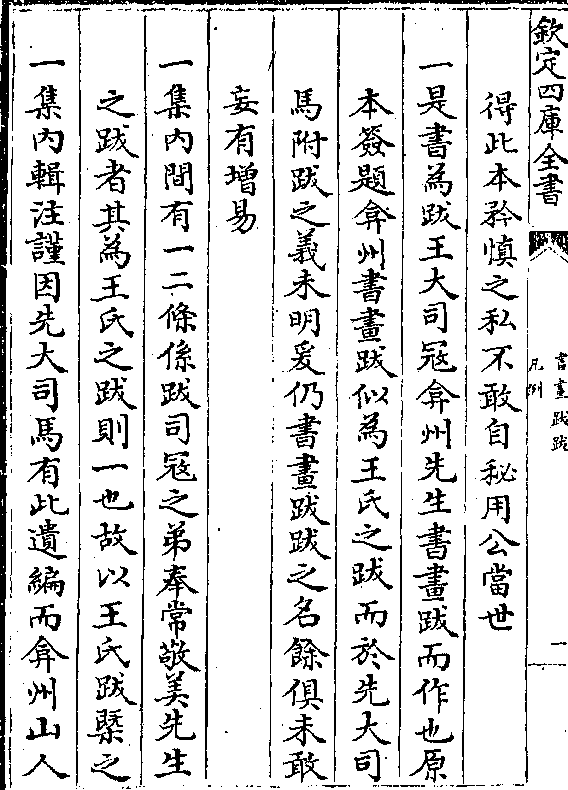 欽定四庫全書
書畫跋跋
凡例
一
得此本矜慎之私不敢自秘用公當世
一是書為跋王大司冦弇州先生書畫跋而作也原
本簽題弇州書畫跋似為王氏之跋而於先大司
馬附跋之義未明爰仍書畫跋跋之名餘俱未敢
妄有增易
一集内間有一二條係跋司冦之弟奉常敬美先生
之跋者其為王氏之跋則一也故以王氏跋槩之
一集内輯注謹因先大司馬有此遺編而弇州山人